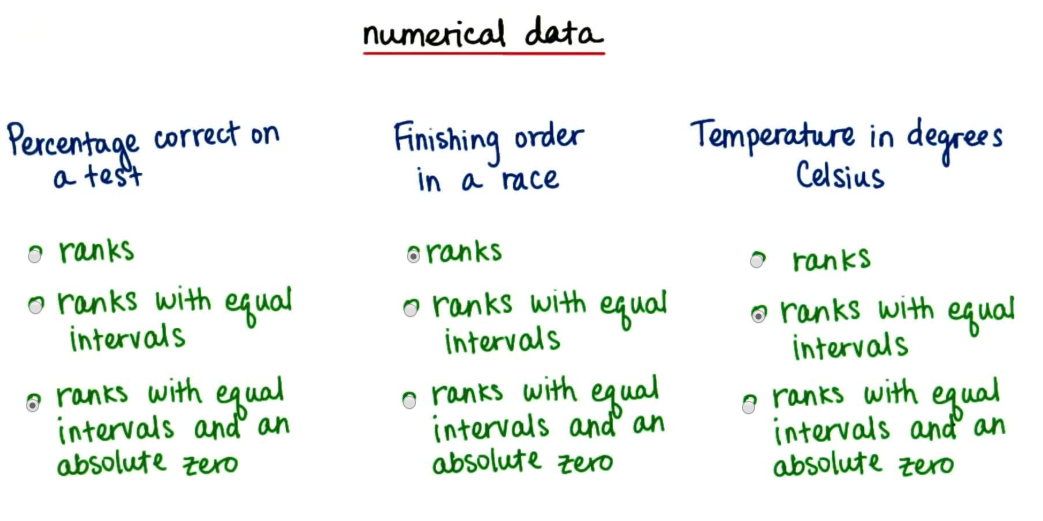 numerical data
Percentage correct on
a test
ranks
ranks with equal
intervals
ranks with equal
intervals and an
absolute zero
Finishing order
in a race
ranks
ranks with equal
intervals
ranks with equal
intervals and an
absolute zero
Temperature in degrees
Celsius
ranks
ranks with equal
intervals
ranks with equal
intervals and an
absolute zero